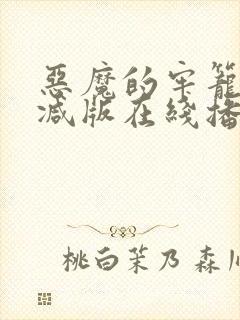 惡魔的牢籠
減版在綫播
桃白茉乃 森川